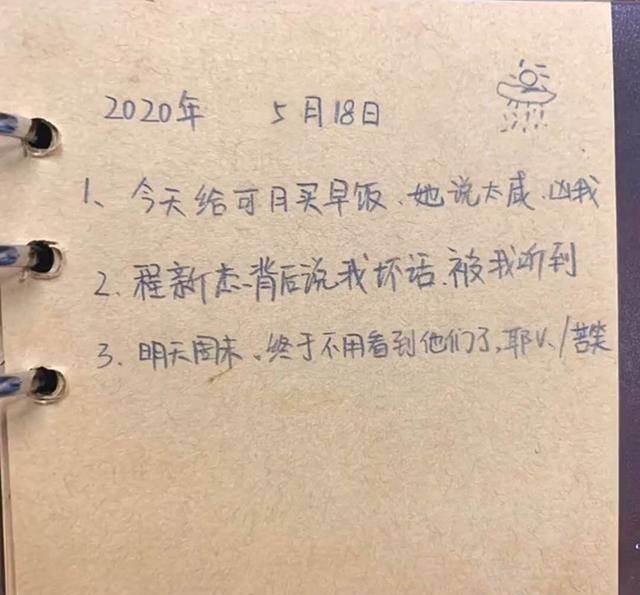 2020年 5月18日
1、今天给可月买早饭、她说太咸、凶我
2.程新杰背后说我坏话.被我听到
3.明天周末、终于不用看到他们了,耶V./苦笑